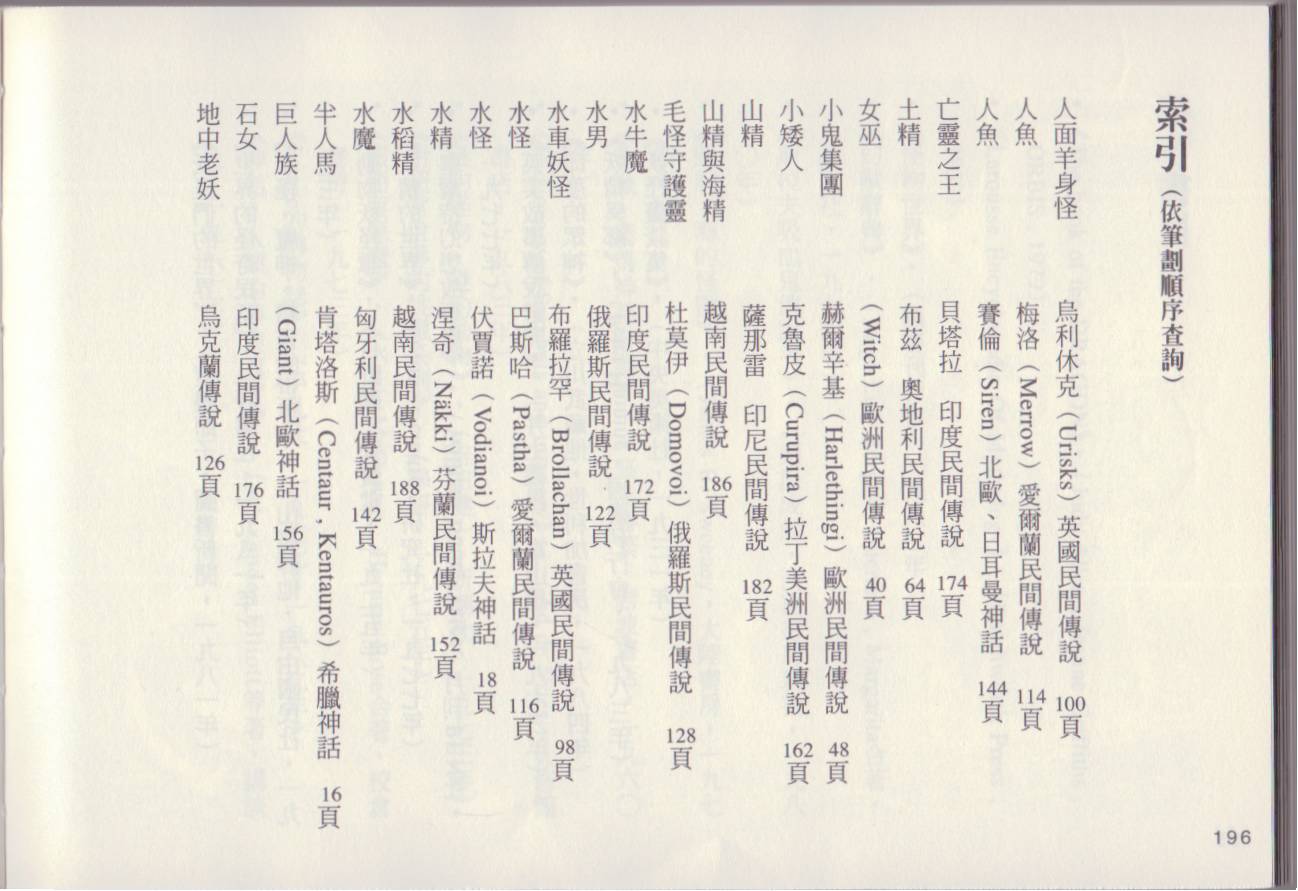 索引（依筆劃順序查詢）
人面羊身怪 烏利休克（Urisks）英國民間傳說 100頁
人魚 梅洛（Merrow）愛爾蘭民間傳說 114頁
人魚 賽倫（Siren）北歐、日耳曼神話 144頁
亡靈之王 貝塔拉 印度民間傳說 174頁
土精 布茲 奧地利民間傳說 64頁
女巫 （Witch）歐洲民間傳說 40頁
小鬼集團 赫爾辛基（Harlethingi）歐洲民間傳說 48頁
小矮人 克魯皮（Curupira）拉丁美洲民間傳說 162頁
山精 薩那雷 印尼民間傳說 182頁
山精與海精 越南民間傳說 186頁
毛怪守護靈 杜莫伊（Domovoi）俄羅斯民間傳說 128頁
水牛魔 印度民間傳說 172頁
水男 俄羅斯民間傳說 122頁
水車妖怪 布羅拉罕（Brollachan）英國民間傳說 98頁
水怪 巴斯哈（Pastha）愛爾蘭民間傳說 116頁
水怪 伏賈諾（Vodianoi）斯拉夫神話 18頁
水精 涅奇（Näkki）芬蘭民間傳說 152頁
水稻精 越南民間傳說 188頁
水魔 匈牙利民間傳說 142頁
半人馬 肯塔洛斯（Centaur , Kentauros）希臘神話 16頁
巨人族 （Giant）北歐神話 156頁
石女 印度民間傳說 176頁
地中老妖 烏克蘭傳說 126頁
196